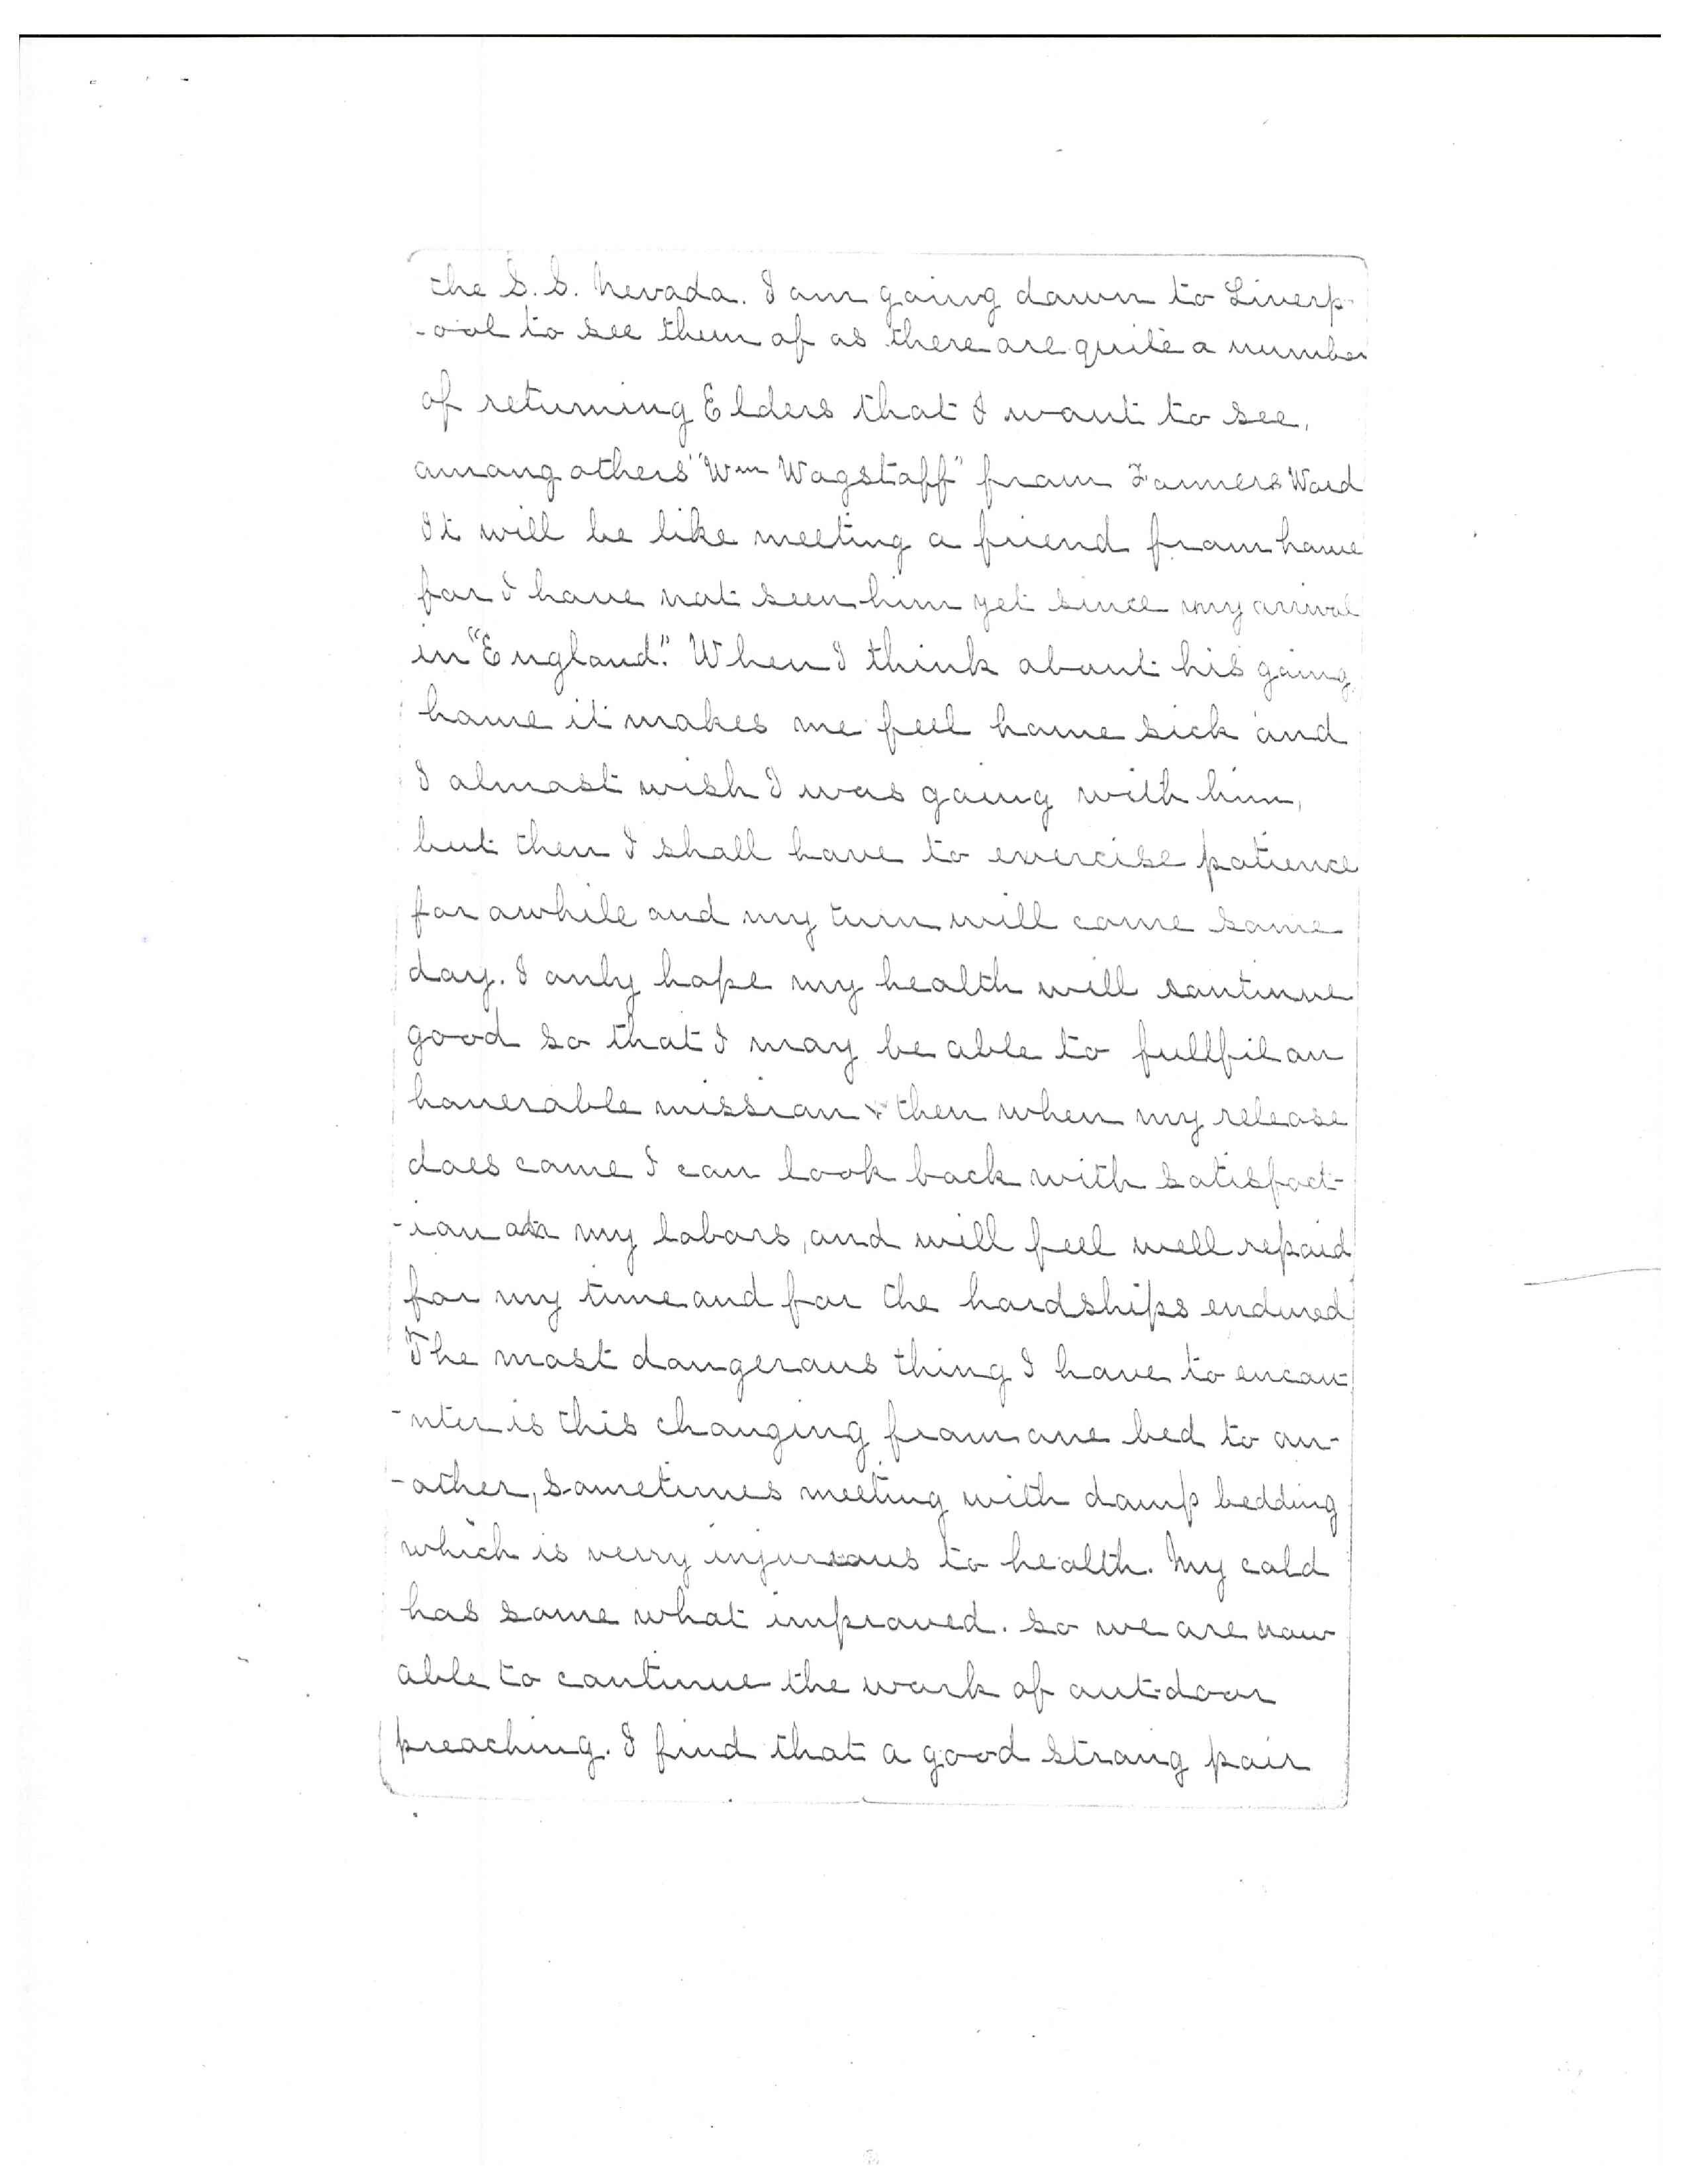 the S.S. Nevada. I am going down to Liverp-
-ool to see them of as there are quite a number
of returning Elders that I want to see,
among others "Wm Wagstaff" from Farmers Ward
It will be like meeting a friend from home
for I have not seen him yet since my arrival
in "England." When I think about his going
home it makes me feel home sick and
I almost wish I was going with him,
but then I shall have to exercise patience
for awhile and my turn will come some
day. I only hope my health will continue
good so that I may be able to fullfil an
honerable mission & then when my release
does come I can look back with satisfact-
-ion on my labors, and will feel well repaid
for my time and for the hardships endured
The most dangerous thing I have to encou-
-nter is this changing from one bed to an-
-other, sometimes meeting with damp bedding
which is verry injurious to health. My cold
has some what improved. so we are now
able to continue the work of out-door
preaching. I find that a good strong pair